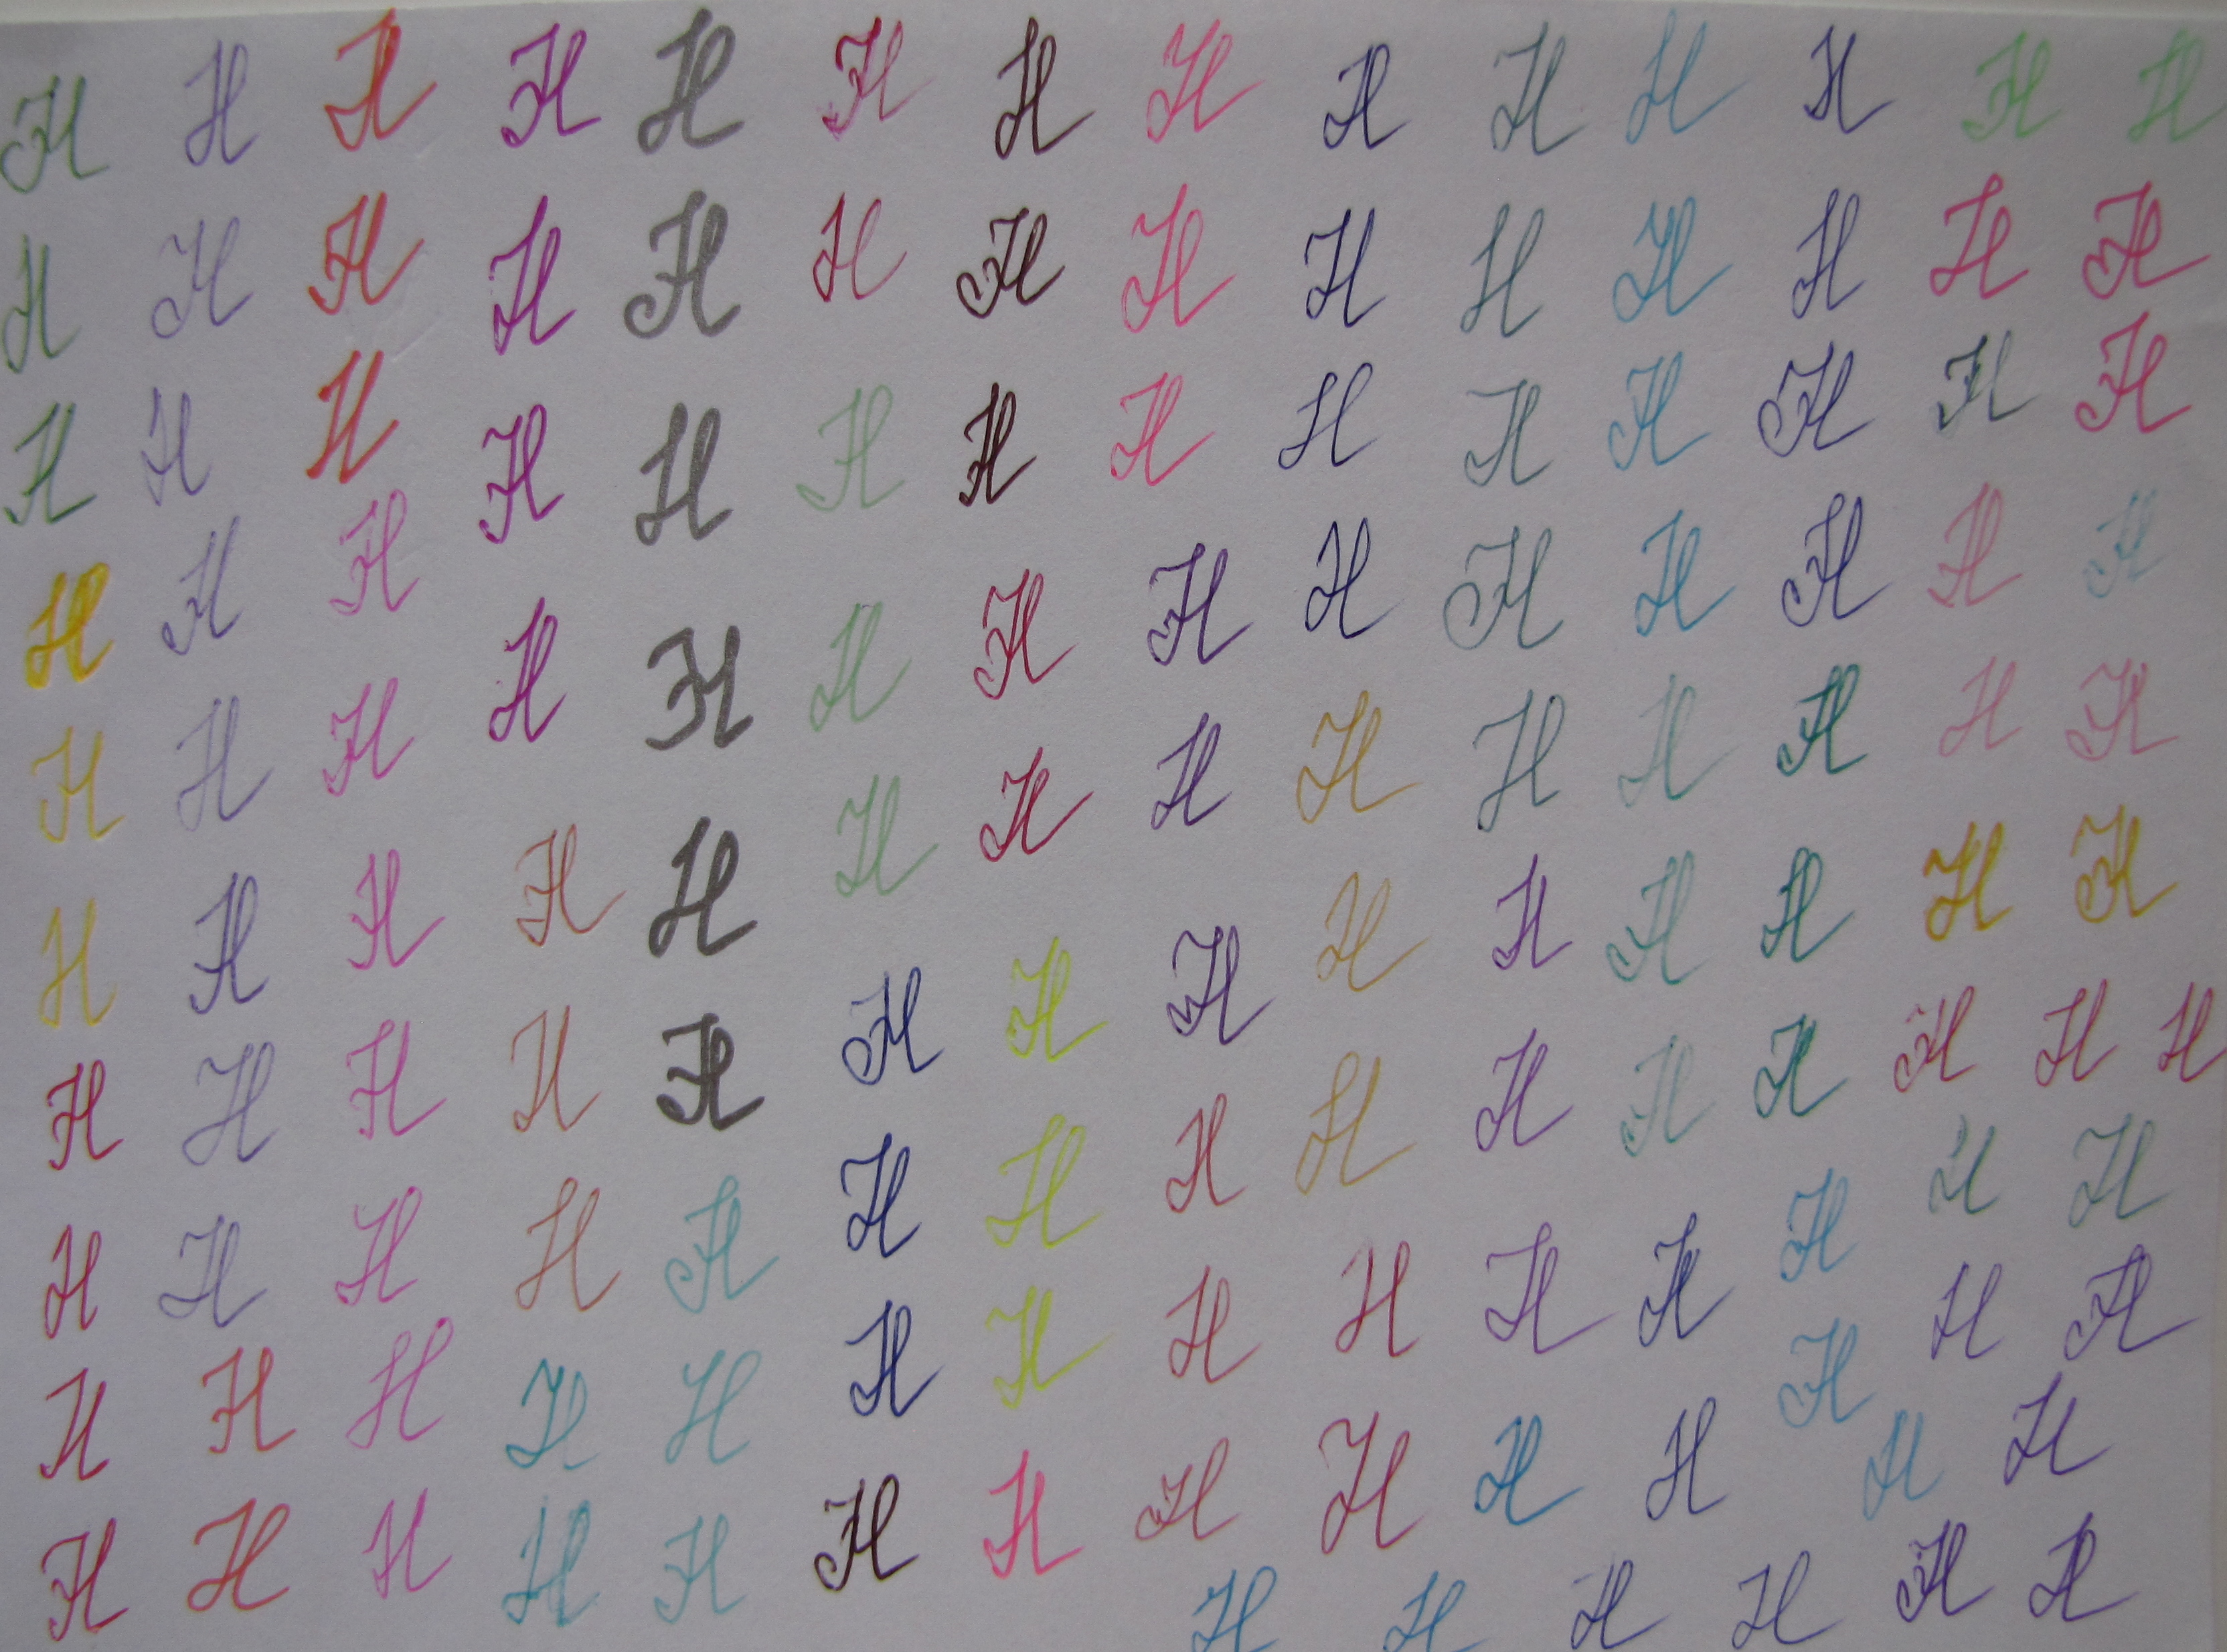 H H H H H H H H H H H H H H
H H H H H H H H H H H H H H
H H H H H H H H H H H H H H
H H H H H H H H H H H H H H
H H H H H H H H H H H H H H
H H H H H H H H H H H H H H
H H H H H H H H H H H H H H H
H H H H H H H H H H H H H H
H H H H H H H H H H H H
H H H H H H H
H H H H H H